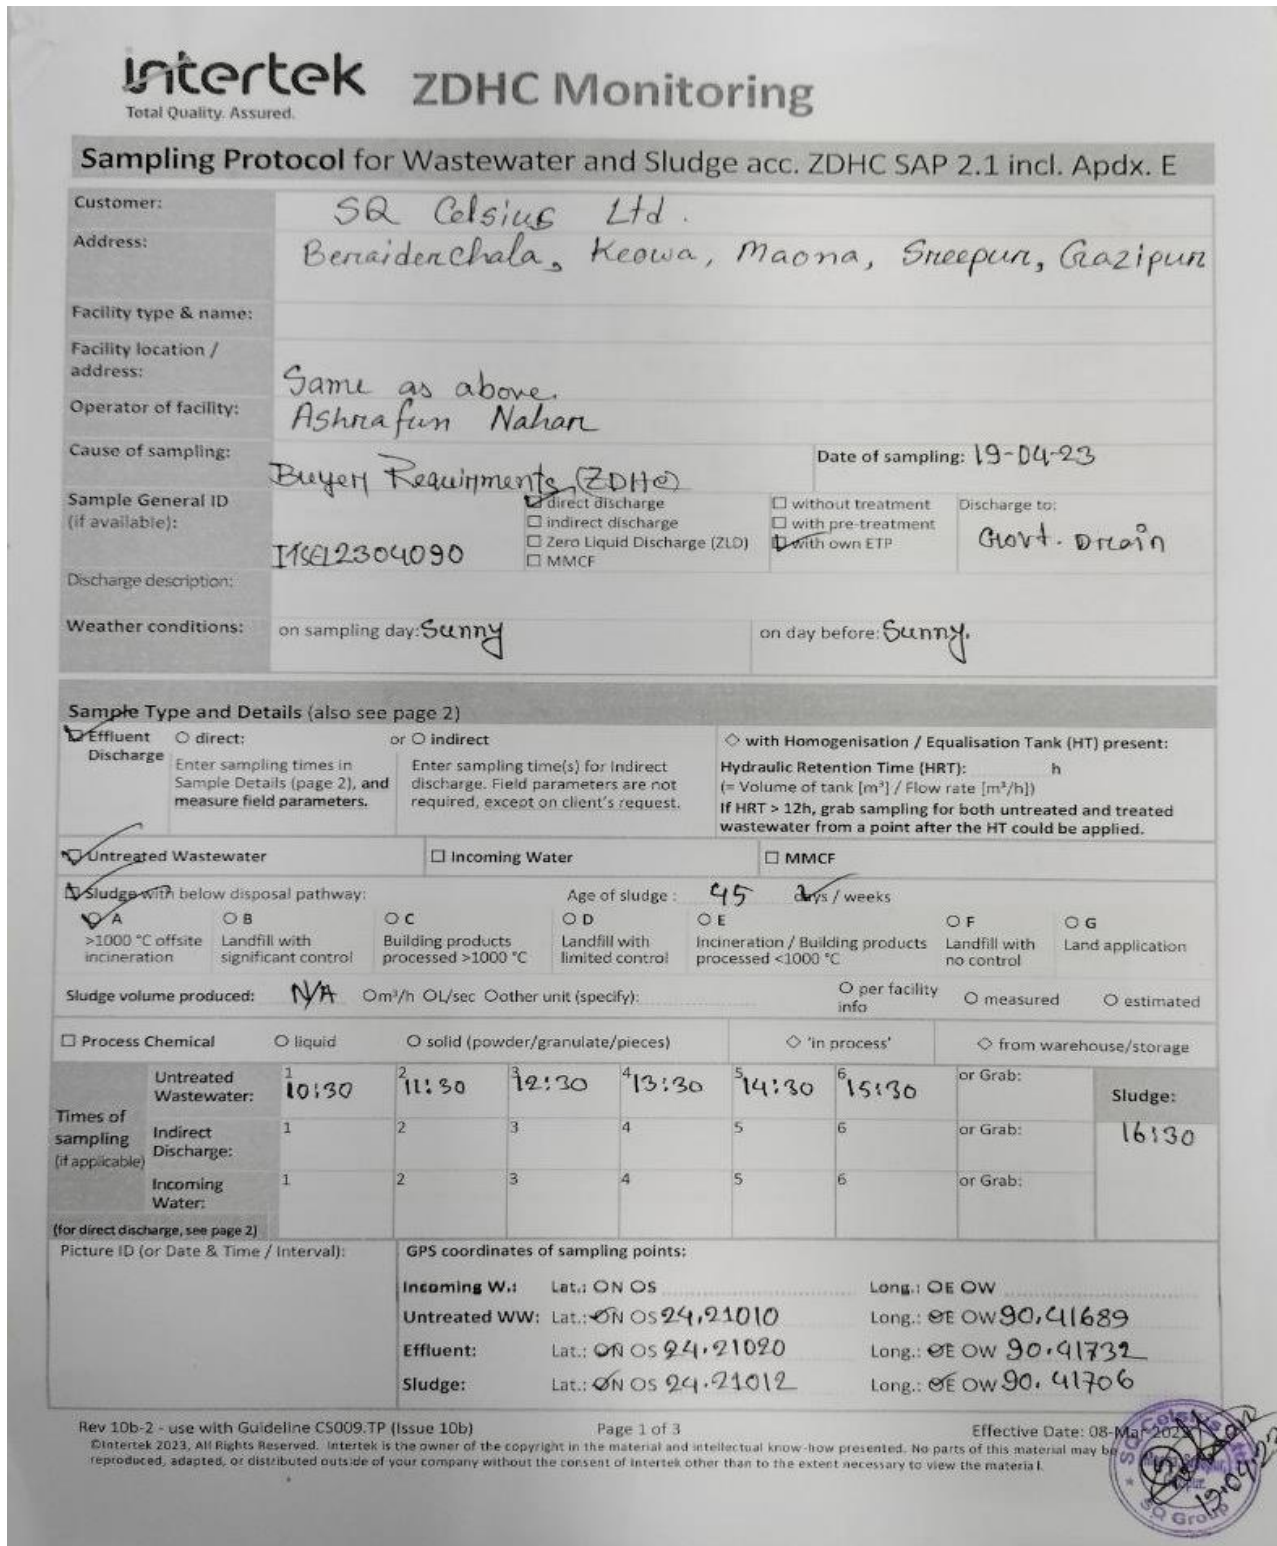 intertek
Total Quality. Assured.
ZDHC Monitoring
Sampling Protocol for Wastewater and Sludge acc. ZDHC SAP 2.1 incl. Apdx. E
Customer: SQ Celsius Ltd.
Address: Beraiderchala, Keowa, Maona, Sreepur, Gazipur
Facility type & name:
Facility location / address: Same as above.
Operator of facility: Ashrafun Nahar
Cause of sampling: Buyer Requirments (ZDHC)
Date of sampling: 19-04-23
Sample General ID (if available):
direct discharge
indirect discharge
Zero Liquid Discharge (ZLD)
MMCF
without treatment
with pre-treatment
with own ETP
Discharge to: Govt. Drain
Discharge description:
Weather conditions: on sampling day: Sunny on day before: Sunny.
Sample Type and Details (also see page 2)
Effluent Discharge
direct:
Enter sampling times in
Sample Details (page 2), and
measure field parameters.
or indirect
Enter sampling time(s) for Indirect
discharge. Field parameters are not
required, except on client's request.
with Homogenisation / Equalisation Tank (HT) present:
Hydraulic Retention Time (HRT): h
(= Volume of tank [m³] / Flow rate [m³/h])
If HRT > 12h, grab sampling for both untreated and treated
wastewater from a point after the HT could be applied.
Untreated Wastewater Incoming Water MMCF
Sludge with below disposal pathway: Age of sludge : 45 days / weeks
A
>1000 °C offsite
incineration
B
Landfill with
significant control
C
Building products
processed >1000 °C
D
Landfill with
limited control
E
Incineration / Building products
processed <1000 °C
F
Landfill with
no control
G
Land application
Sludge volume produced: N/A m³/h L/sec other unit (specify): per facility info measured estimated
Process Chemical liquid solid (powder/granulate/pieces) 'in process' from warehouse/storage
Times of sampling (if applicable)
Untreated Wastewater: 1 10:30 2 11:30 3 12:30 4 13:30 5 14:30 6 15:30 or Grab:
Sludge: 16:30
Indirect Discharge: 1 2 3 4 5 6 or Grab:
Incoming Water: 1 2 3 4 5 6 or Grab:
(for direct discharge, see page 2)
Picture ID (or Date & Time / Interval):
GPS coordinates of sampling points:
Incoming W.: Lat.: N S Long.: E W
Untreated WW: Lat.: N S 24.21010 Long.: E W 90.41689
Effluent: Lat.: N S 24.21020 Long.: E W 90.41732
Sludge: Lat.: N S 24.21012 Long.: E W 90.41706
Rev 10b-2 - use with Guideline CS009.TP (Issue 10b) Page 1 of 3 Effective Date: 08-Mar-2023
©Intertek 2023, All Rights Reserved. Intertek is the owner of the copyright in the material and intellectual know-how presented. No parts of this material may be
reproduced, adapted, or distributed outside of your company without the consent of Intertek other than to the extent necessary to view the material.
SQ Celsius Ltd
SQ Group
19.04.23